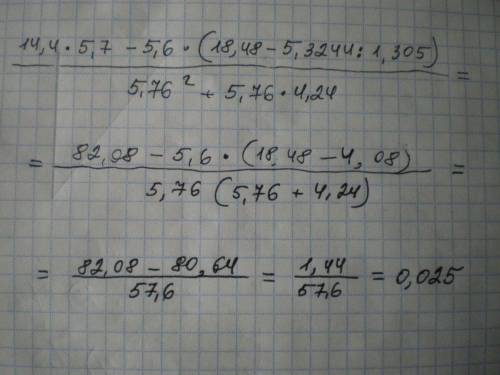 14,4 · 5,7 – 5,6 · (18,48 – 5,3244 : 1,305)
5,76² + 5,76 · 4,24 =
= 82,08 – 5,6 · (18,48 – 4,08)
5,76 (5,76 + 4,24) =
= 82,08 – 80,64 / 57,6 = 1,44 / 57,6 = 0,025